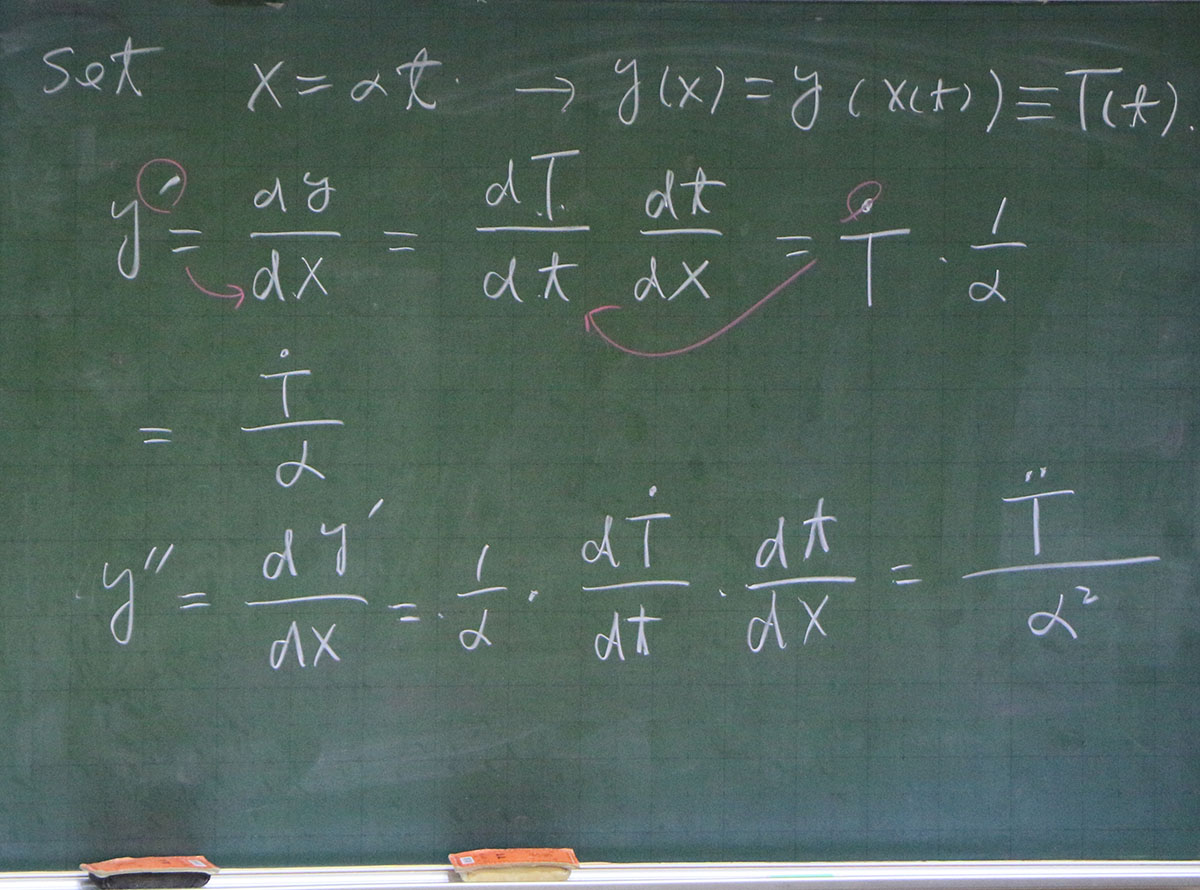 Set x = αt. → y(x) = y(x(t)) ≡ T(t).
y′ = dy/dx = dT/dt dt/dx = Ṫ · 1/α
= Ṫ/α
y″ = dy′/dx = 1/α · dṪ/dt · dt/dx = T̈/α²